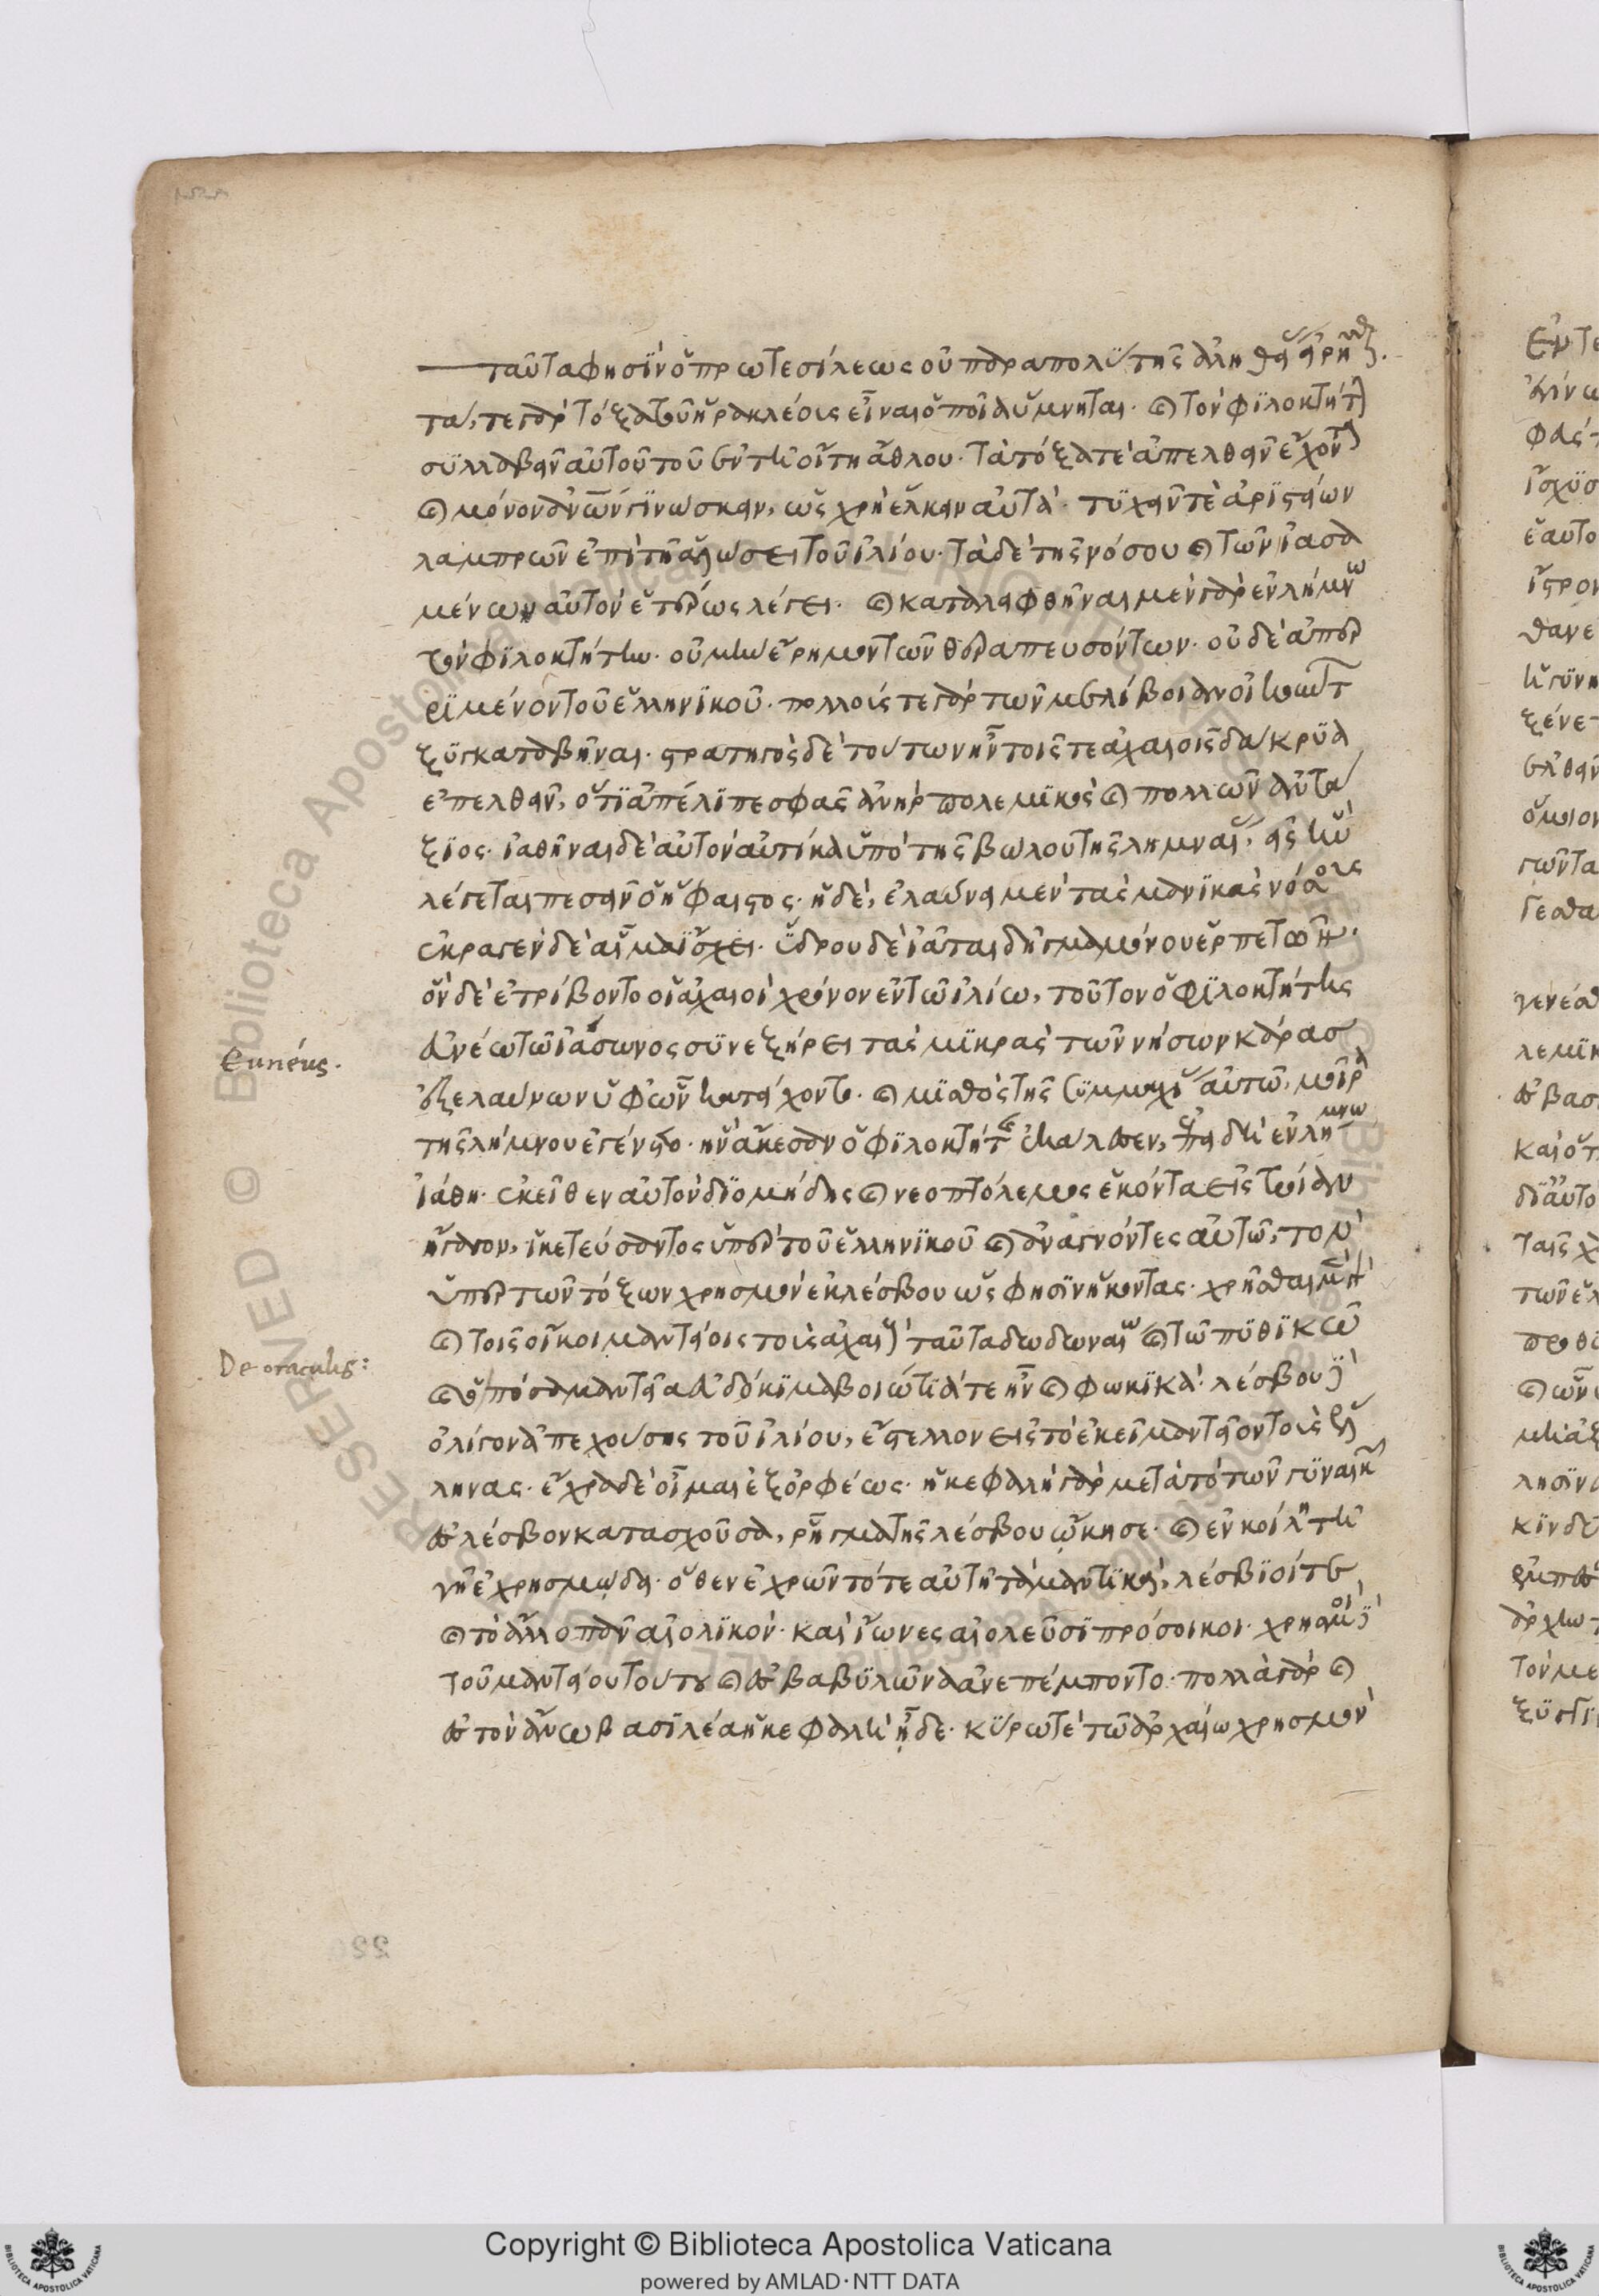 ταῦτα φησὶν ὁ πρωτεσίλεως οὐ παρὰ πολὺ τῆς ἀληθείας εἰρῆσθαι.
τά, τε γὰρ τόξα τοῦ ἡρακλέους εἶναι ὁποῖα ὕμνηται. καὶ τὸν φιλοκτήτην
συλλαβεῖν αὐτοῦ τοῦ ἐν τῇ οἴτῃ ἄθλου. τὰ τόξα τε ἀπελθεῖν ἔχοντα
καὶ μόνον ἀνθρώπων γινώσκειν, ὡς χρὴ ἕλκειν αὐτά. τυχεῖν τὲ ἀριστείων
λαμπρῶν ἐπὶ τῇ ἁλώσει τοῦ ἰλίου. τὰ δὲ τῆς νόσου καὶ τῶν ἰασα
μένων αὐτὸν ἑτέρως λέγει. καὶ καταλειφθῆναι μὲν γὰρ ἐν λήμνῳ
τὸν φιλοκτήτην. οὐ μὴν ἔρημον τῶν θεραπευσόντων. οὐδὲ ἀπερ
ριμένον τοῦ ἑλληνικοῦ. πολλούς τε γὰρ τῶν μελίβοιαν οἰκούντων
ξυγκαταβῆναι. στρατηγὸς δὲ τούτων ἦν τοῖς τε ἀχαιοῖς δάκρυα
ἐπελθεῖν, ὅτι ἀπέλιπε σφᾶς ἀνὴρ πολεμικὸς καὶ πολλῶν ἀντά
ξιος. ἰαθῆναι δὲ αὐτὸν αὐτίκα ὑπὸ τῆς βώλου τῆς λημνίας, εἰς ἣν
λέγεται πεσεῖν ὁ ἥφαιστος. ἡ δὲ, ἐλαύνει μὲν τὰς μανικὰς νόσους
ἐκραγὲν δὲ αἷμα ἴσχει. ὕδρου δὲ ἰᾶται δῆγμα μόνου ἑρπετῶν.
ὃν δὲ ἐτρίβοντο οἱ ἀχαιοὶ χρόνον ἐν τῷ ἰλίῳ, τοῦτον ὁ φιλοκτήτης
εὐνέῳ τῷ ἰάσωνος συνεξῄρει τὰς μικρὰς τῶν νήσων κάρας
ἐξελαύνων ὑφ' ὧν κατείχοντο. καὶ μισθὸς τῆς ξυμμαχίας αὐτῷ, μοῖρα
τῆς λήμνου ἐγένετο. ἣν ἄκεσαν ὁ φιλοκτήτης ἐκάλεσεν, ἐπειδὴ ἐν λήμνῳ
ἰάθη. ἐκεῖθεν αὐτὸν διομήδης καὶ νεοπτόλεμος ἑκόντα εἰς τροίαν
ἤγαγον, ἱκετεύσαντος ὑπὲρ τοῦ ἑλληνικοῦ καὶ ἀναγνόντες αὐτῷ, τὸν
ὑπὲρ τῶν τόξων χρησμὸν ἐκ λέσβου ὥς φησιν ἥκοντα. χρῆσθαι μὲν
καὶ τοῖς οἴκοι μαντείοις τοὺς ἀχαιοὺς ταῦτα δωδωναίῳ καὶ τῷ πυθικῷ
καὶ ὁπόσα μαντεῖα εὐδόκιμα βοιώτιά τε ἦν καὶ φωκικά. λέσβου δὲ
ὀλίγον ἀπεχούσης τοῦ ἰλίου, ἔστελλον εἰς τὸ ἐκεῖ μαντεῖον τοὺς ἕλ
ληνας. ἔχρα δὲ οἶμαι ἐξ ὀρφέως. ἡ κεφαλὴ γὰρ μετὰ τὸ τῶν γυναικῶν
ἐς λέσβον κατασχοῦσα, ῥῆγμα τῆς λέσβου ᾤκησε. καὶ ἐν κοίλῃ τῇ
γῇ ἐχρησμώδει. ὅθεν ἐχρῶντό τε αὐτῇ τὰ μαντικά, λέσβιοί τε,
καὶ τὸ ἄλλο πᾶν αἰολικόν. καὶ ἴωνες αἰολεῦσι πρόσοικοι. χρησμοὶ δὲ
τοῦ μαντείου τούτου καὶ ἐς βαβυλῶνα ἀνεπέμποντο. πολλὰ γὰρ καὶ
ἐς τὸν ἄνω βασιλέα ἡ κεφαλὴ ᾖδε. κύρῳ τε τῷ ἀρχαίῳ χρησμὸν
Euneus.
De oraculis:
Copyright © Biblioteca Apostolica Vaticana
powered by AMLAD·NTT DATA